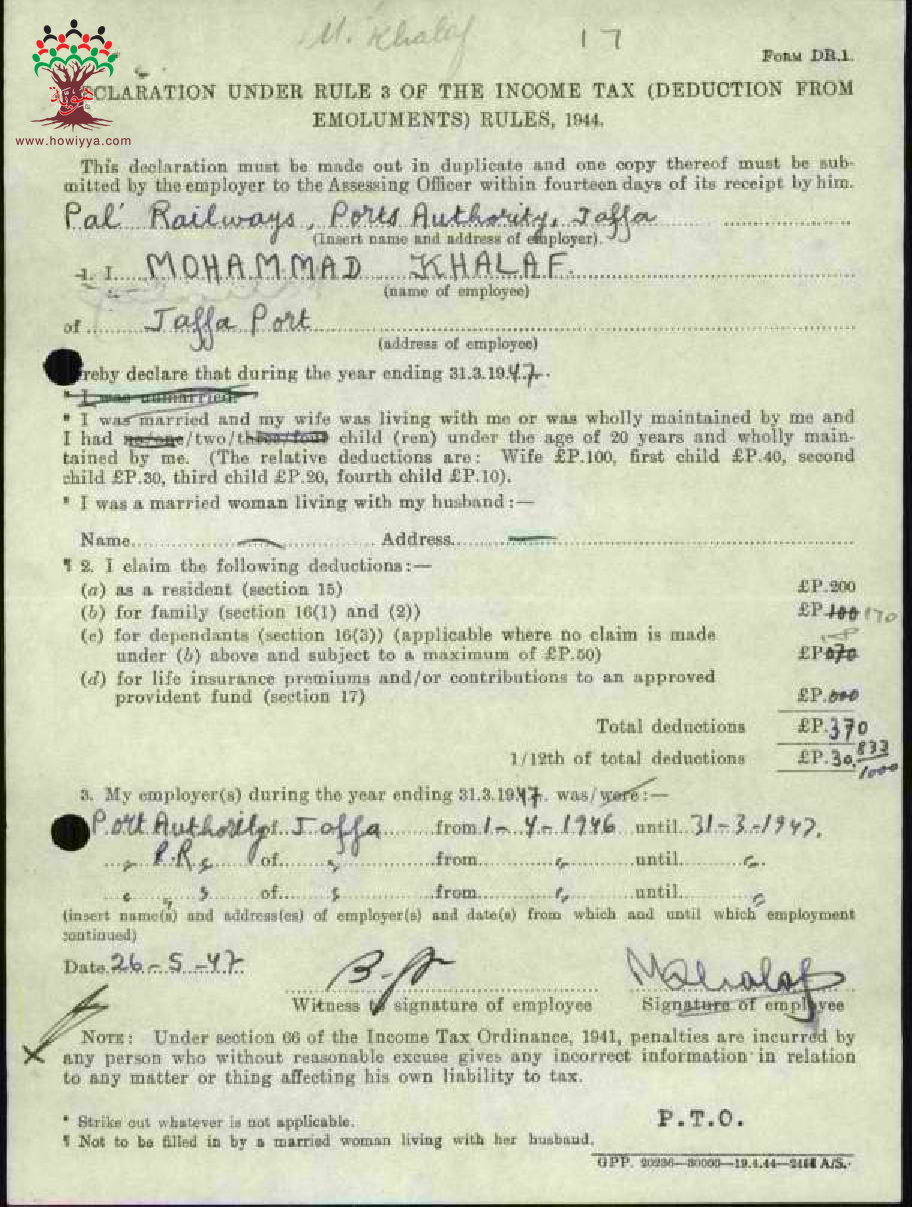 M. Khalaf 17
FORM DR.1.
www.howiyya.com
CLARATION UNDER RULE 3 OF THE INCOME TAX (DEDUCTION FROM
EMOLUMENTS) RULES, 1944.
This declaration must be made out in duplicate and one copy thereof must be sub-
mitted by the employer to the Assessing Officer within fourteen days of its receipt by him.
Pal' Railways, Ports Authority, Jaffa
(Insert name and address of employer).
1. I MOHAMMAD KHALAF.
(name of employee)
of Jaffa Port
(address of employee)
reby declare that during the year ending 31.3.1947.
* I was unmarried.
* I was married and my wife was living with me or was wholly maintained by me and
I had no/one/two/three/four child (ren) under the age of 20 years and wholly main-
tained by me. (The relative deductions are: Wife £P.100, first child £P.40, second
child £P.30, third child £P.20, fourth child £P.10).
* I was a married woman living with my husband:—
Name — Address —
¶ 2. I claim the following deductions:—
(a) as a resident (section 15) £P.200
(b) for family (section 16(1) and (2)) £P.100 170
(c) for dependants (section 16(3)) (applicable where no claim is made
under (b) above and subject to a maximum of £P.50) £P.070
(d) for life insurance premiums and/or contributions to an approved
provident fund (section 17) £P.000
Total deductions £P.370
1/12th of total deductions £P.30.833/1000
3. My employer(s) during the year ending 31.3.1947. was/were:—
Port Authority of Jaffa from 1-4-1946 until 31-3-1947.
„ P.R. „ of „ from „ until „
„ „ „ of „ from „ until „
(insert name(s) and address(es) of employer(s) and date(s) from which and until which employment
continued)
Date 26-5-47
MKhalaf
Witness to signature of employee Signature of employee
NOTE: Under section 66 of the Income Tax Ordinance, 1941, penalties are incurred by
any person who without reasonable excuse gives any incorrect information in relation
to any matter or thing affecting his own liability to tax.
* Strike out whatever is not applicable.
¶ Not to be filled in by a married woman living with her husband.
P.T.O.
GPP. 20236—80000—19.4.44— A/S.